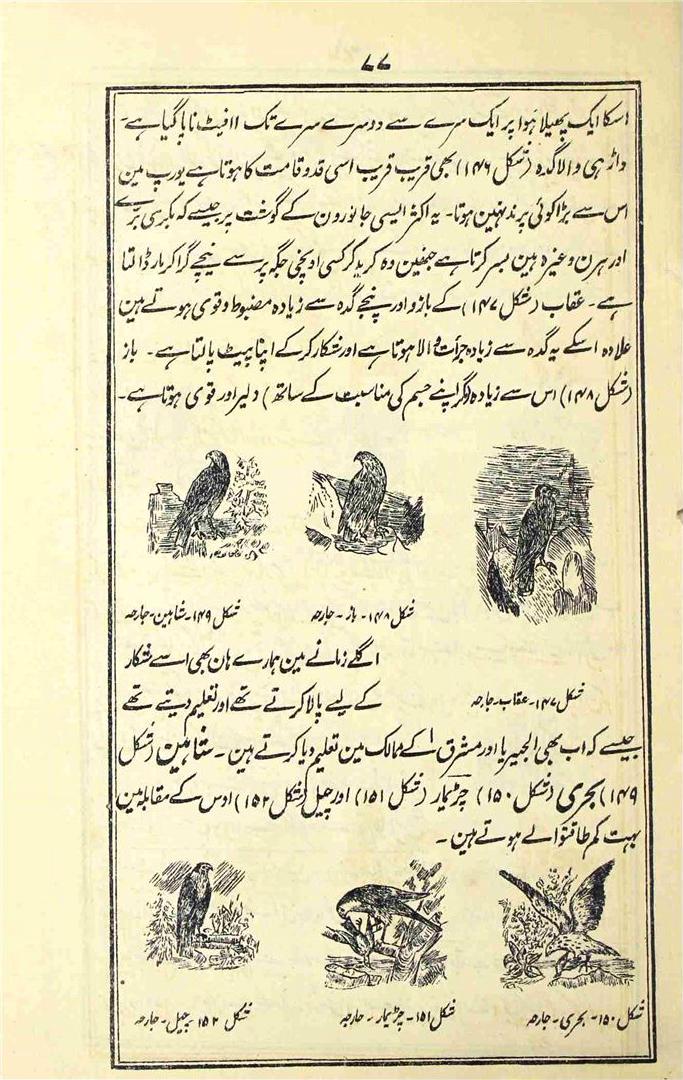 ۷۷
اسکا ایک پھیلا ہوا پر ایک سرے سے دوسرے سرے تک ۱۱ فیٹ ناپا گیا ہے۔
داڑہی والا گدہ (شکل ۱۴۶) بھی قریب قریب اسی قدوقامت کا ہوتا ہے یورپ مین
اس سے بڑا کوئی پرند نہین ہوتا۔ یہ اکثر ایسی جانورون کے گوشت پر جیسے کہ بکری بڑے
اور ہرن وغیرہ ہین بسر کرتا ہے جنھین وہ کرید کر کسی اونچی جگہ پر سے نیچے گرا کر مار ڈالتا
ہے۔ عقاب (شکل ۱۴۷) کے بازو اور پنجے گدہ سے زیادہ مضبوط و قوی ہوتے ہین
علاوہ اسکے یہ گدہ سے زیادہ جرأت والا ہوتا ہے اور شکار کرکے اپنا پیٹ پالتا ہے۔ باز
(شکل ۱۴۸) اس سے زیادہ (مگر اپنے جسم کی مناسبت کے ساتھ) دلیر اور قوی ہوتا ہے۔
شکل ۱۴۸۔ باز۔ جارحہ
شکل ۱۴۹۔ شاہین۔ جارحہ
شکل ۱۴۷۔ عقاب۔ جارحہ
اگلے زمانے مین ہمارے ہان بھی اسے شکار
کے لیے پالا کرتے تھے اور تعلیم دیتے تھے
جیسے کہ اب بھی الجیریا اور مشرق کے ممالک مین تعلیم دیا کرتے ہین۔ شاہین (شکل
۱۴۹) بحری (شکل ۱۵۰) چڑیمار (شکل ۱۵۱) اور چیل (شکل ۱۵۲) اوس کے مقابلہ مین
بہت کم طاقتوالے ہوتے ہین۔
شکل ۱۵۰۔ بحری۔ جارحہ
شکل ۱۵۱۔ چڑیمار۔ جارحہ
شکل ۱۵۲۔ چیل۔ جارحہ